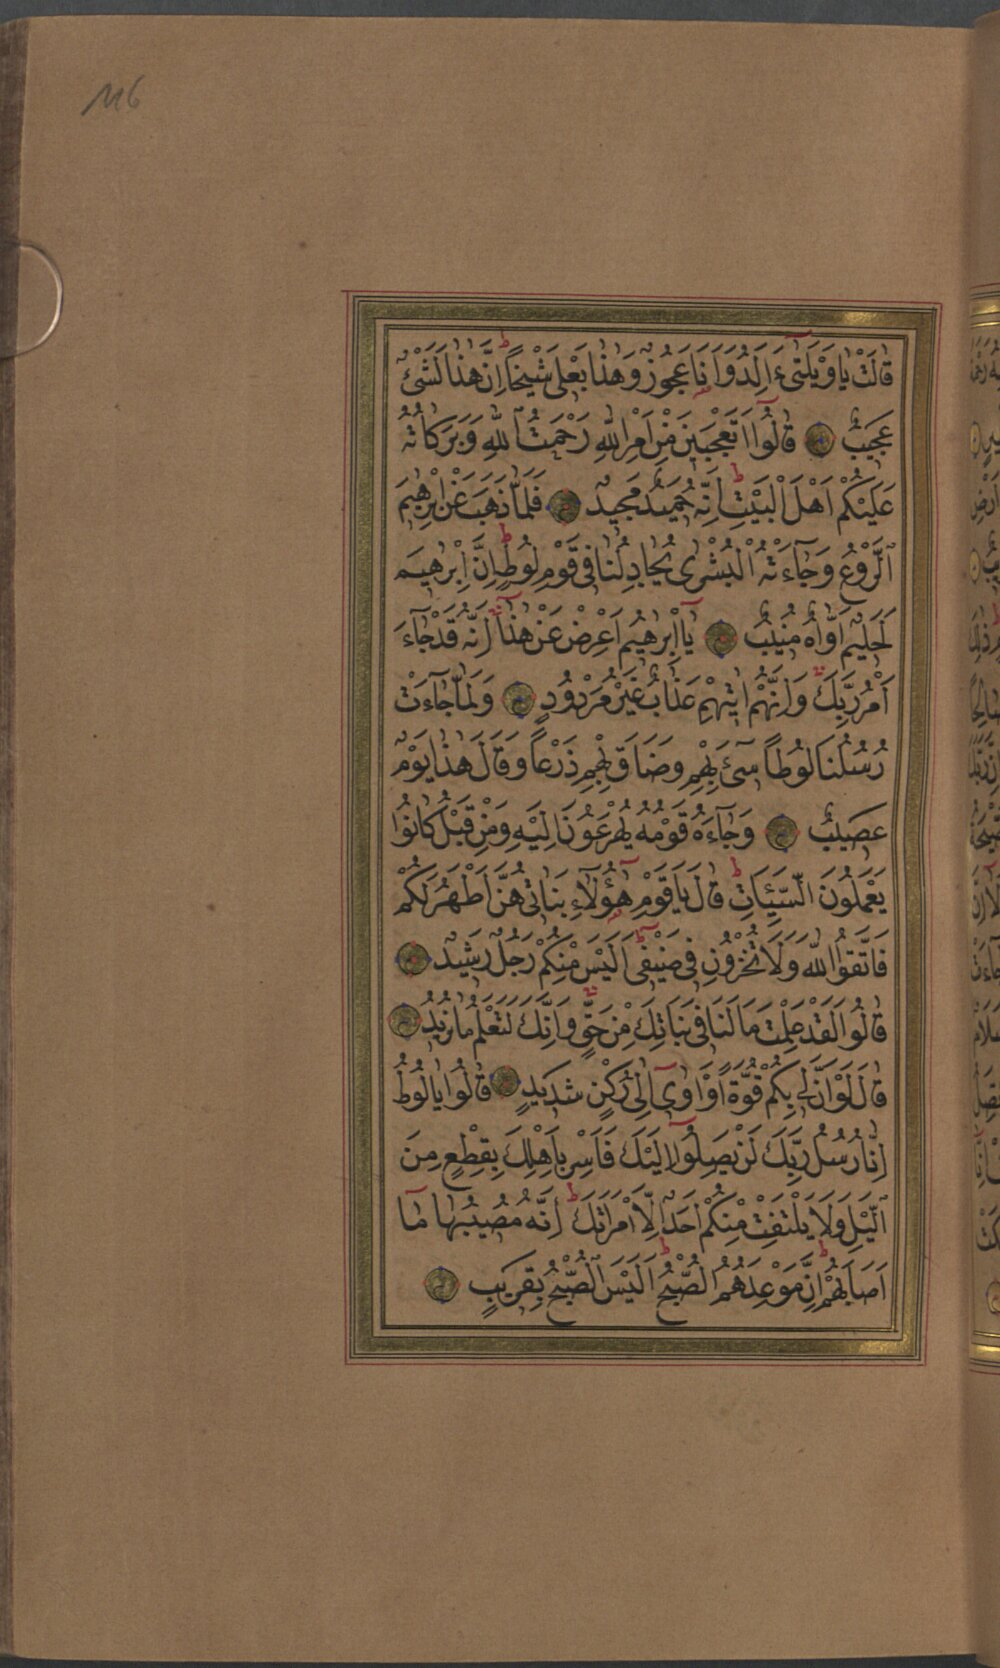 116
قَالَتْ يَا وَيْلَتٰىٓ ءَاَلِدُ وَاَنَا۬ عَجُوزٌ وَهٰذَا بَعْلٖى شَيْخًاۜ اِنَّ هٰذَا لَشَىْءٌ
عَجٖيبٌ قَالُٓوا اَتَعْجَبٖينَ مِنْ اَمْرِ اللّٰهِ رَحْمَتُ اللّٰهِ وَبَرَكَاتُهُ
عَلَيْكُمْ اَهْلَ الْبَيْتِۜ اِنَّهُ حَمٖيدٌ مَجٖيدٌ فَلَمَّا ذَهَبَ عَنْ اِبْرٰهٖيمَ
الرَّوْعُ وَجَٓاءَتْهُ الْبُشْرٰى يُجَادِلُنَا فٖى قَوْمِ لُوطٍۜ اِنَّ اِبْرٰهٖيمَ
لَحَلٖيمٌ اَوَّاهٌ مُنٖيبٌ يَٓا اِبْرٰهٖيمُ اَعْرِضْ عَنْ هٰذَاۚ اِنَّهُ قَدْ جَٓاءَ
اَمْرُ رَبِّكَۚ وَاِنَّهُمْ اٰتٖيهِمْ عَذَابٌ غَيْرُ مَرْدُودٍ وَلَمَّا جَٓاءَتْ
رُسُلُنَا لُوطًا سٖٓىءَ بِهِمْ وَضَاقَ بِهِمْ ذَرْعًا وَقَالَ هٰذَا يَوْمٌ
عَصٖيبٌ وَجَٓاءَهُ قَوْمُهُ يُهْرَعُونَ اِلَيْهِ وَمِنْ قَبْلُ كَانُوا
يَعْمَلُونَ السَّيِّـَٔاتِۜ قَالَ يَا قَوْمِ هٰٓؤُ۬لَٓاءِ بَنَاتٖى هُنَّ اَطْهَرُ لَكُمْ
فَاتَّقُوا اللّٰهَ وَلَا تُخْزُونِ فٖى ضَيْفٖىۜ اَلَيْسَ مِنْكُمْ رَجُلٌ رَشٖيدٌ
قَالُوا لَقَدْ عَلِمْتَ مَا لَنَا فٖى بَنَاتِكَ مِنْ حَقٍّۚ وَاِنَّكَ لَتَعْلَمُ مَا نُرٖيدُ
قَالَ لَوْ اَنَّ لٖى بِكُمْ قُوَّةً اَوْ اٰوٖٓى اِلٰى رُكْنٍ شَدٖيدٍ قَالُوا يَا لُوطُ
اِنَّا رُسُلُ رَبِّكَ لَنْ يَصِلُٓوا اِلَيْكَ فَاَسْرِ بِاَهْلِكَ بِقِطْعٍ مِنَ
الَّيْلِ وَلَا يَلْتَفِتْ مِنْكُمْ اَحَدٌ اِلَّا امْرَاَتَكَۜ اِنَّهُ مُصٖيبُهَا مَٓا
اَصَابَهُمْۜ اِنَّ مَوْعِدَهُمُ الصُّبْحُۜ اَلَيْسَ الصُّبْحُ بِقَرٖيبٍ